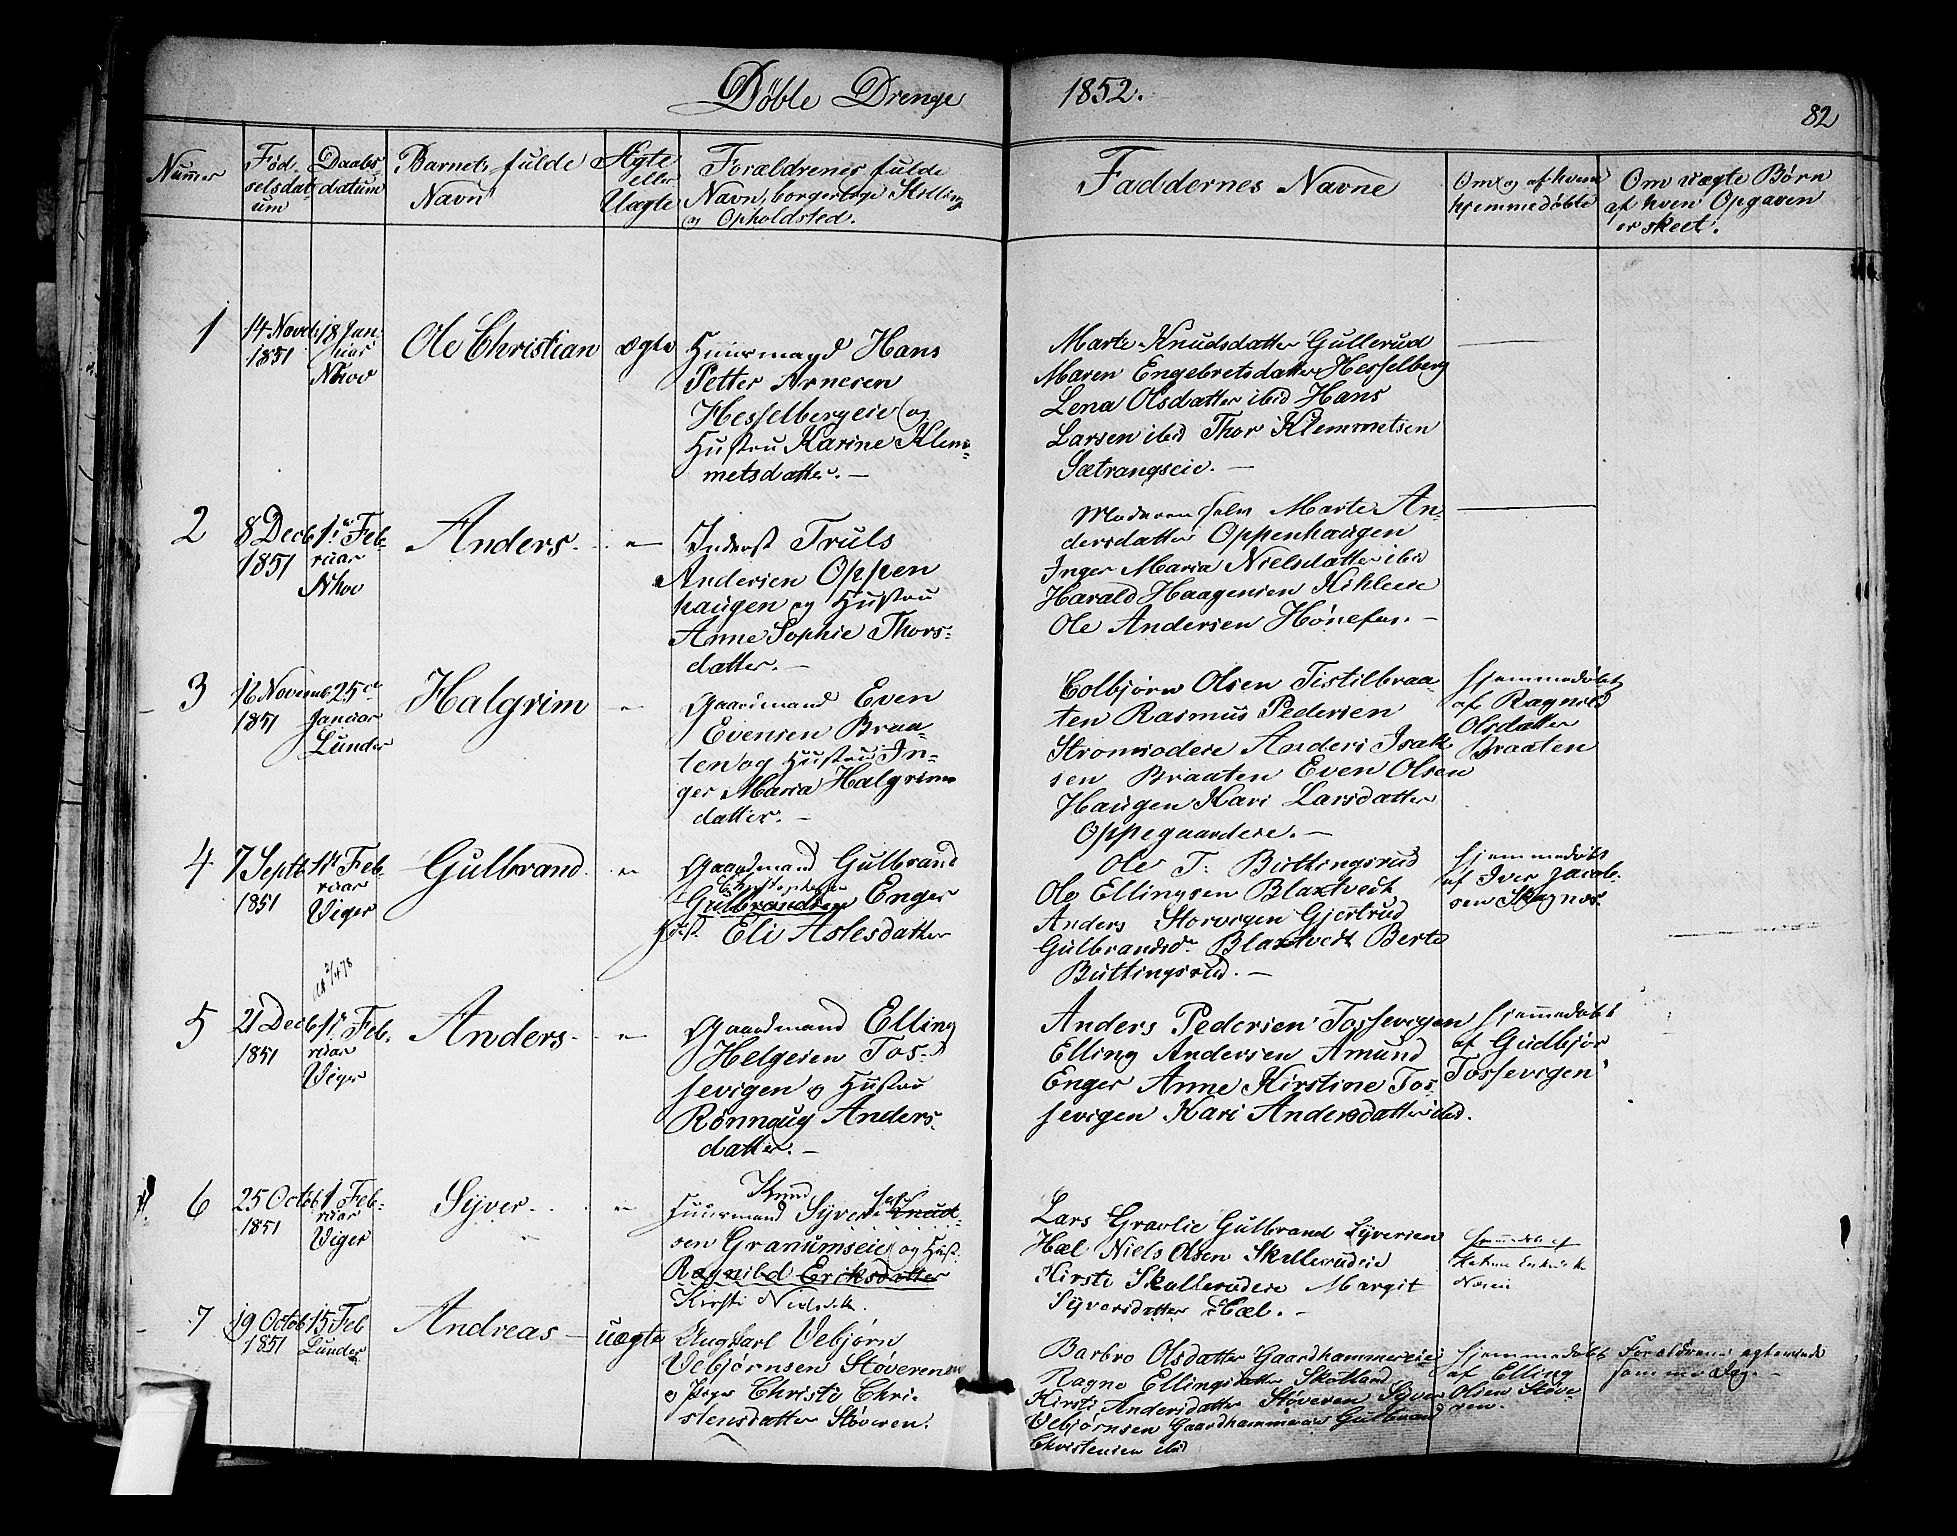 Døble Drenge 1852.
82
Numer
Fød-
selsdat
um
Daabs
datum
Barnets fulde
Navn
Ægte
eller
Uægte
Forældrenes fulde
Navn, borgerlige Stilling
og Opholdsted.
Faddernes Navne
Om og af hvem
hjemmedøbte
Om uægte Børn
af hvem Opgaven
er skeet.
1
14 Novb
1851
18 Jan-
uar
Nhov
Ole Christian
ægte
Huusmand Hans
Petter Arnesen
Hesselbergeie og
Hustru Karine Klem-
metsdatter. —
Marte Knudsdatter Gullerud
Maren Engebretsdatter Hesselberg
Lena Olsdatter ibid Hans
Larsen ibid Thor Klemmetsen
Sætrangseie. —
2
8 Decb
1851
1ste Feb-
ruar
Nhov
Anders
"
Inderst Truls
Andersen Oppen
haugen og Hustru
Anne Sophie Thors-
datter. —
Moderen selv Marte An-
dersdatter Oppenhaugen
Inger Maria Nielsdatter ibid
Harald Haagensen Kihleeie
Ole Andersen Hønefos. —
3
16 Novemb
1851
25de
Januar
Lunder
Halgrim
"
Gaardmand Even
Evensen Braa-
ten og Hustru In-
ger Maria Halgrims
datter. —
Colbjørn Olsen Tistilbraa-
ten Rasmus Pedersen
Stromsodeie Anders Isak
sen Braaten Even Olsen
Haugen Kari Larsdatter
Oppegaardeie. —
hjemmedøbt
af Ragnild
Olsdatter
Braaten
4
7 Septb
1851
1ste Feb-
ruar
Viger
Gulbrand
"
Gaardmand Gulbrand
Christophersen
Gulbrandsen Enger
Hust. Eli Aslesdatter
Ole T. Buttingsrud
Ole Ellingsen Blaxtvedt
Anders Storvigen Gjertrud
Gulbrandsdr Blaxtvedt Berte
Buttingsrud. —
hjemmedøbt
af Iver Jacob-
sen Skagnæs.
5
21 Decb
1851
1ste Feb.
ruar
Viger
Anders
"
Gaardmand Elling
Helgesen Tos-
sevigen og Hustru
Rønnaug Anders-
datter. —
Anders Pedersen Tossevigen
Elling Andersen Amund
Enger Anne Kirstine Tos-
sevigen Kari Andersdatter ibd.
hjemmedøbt
af Gudbjør
Tossevigen
6
25 Octob
1851
1 Feb-
ruar
Viger
Syver
"
Knud
Huusmand Syversen Knud-
sen Granumseie og Hust.
Ragnild Eriksdatter
Kirsti Nielsdtr.
Lars Gravlie Gulbrand Syversen
Hæl Niels Olsen Skollerudeie
Kirsti Skollerudeie Margit
Syversdatter Hæl. —
hjemmedøbt af
7
19 Octob
1851
15 Feb
Lunder
Andreas
uægte
Ungkarl Vebjørn
Vebjørnsen Støveren
og Pige Christi Chri-
stensdatter Støveren.
Barbro Olsdatter Gaardhammereie
Ragne Ellingsdatter Skotland
Kirsti Andersdatter Støveren Syver
Vebjørnsen Gaardhammeren Gulbrand
Christensen ibid
hjemmedøbt
af Elling
Olsen Støve-
ren.
Forældrene egteviede
samme Dag. —